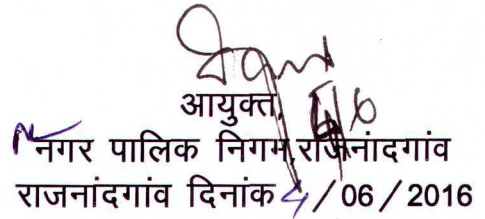 आयुक्त,
नगर पालिक निगम,राजनांदगांव
राजनांदगांव दिनांक 4/06/2016